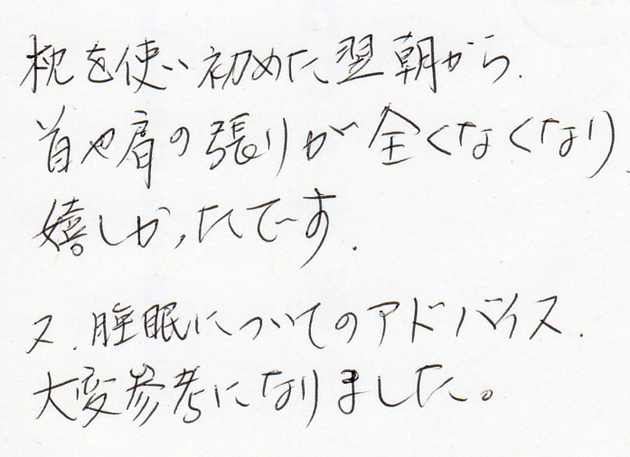 枕を使い初めた翌朝から、
首や肩の張りが全くなくなり
嬉しかったです。
又、睡眠についてのアドバイス、
大変参考になりました。